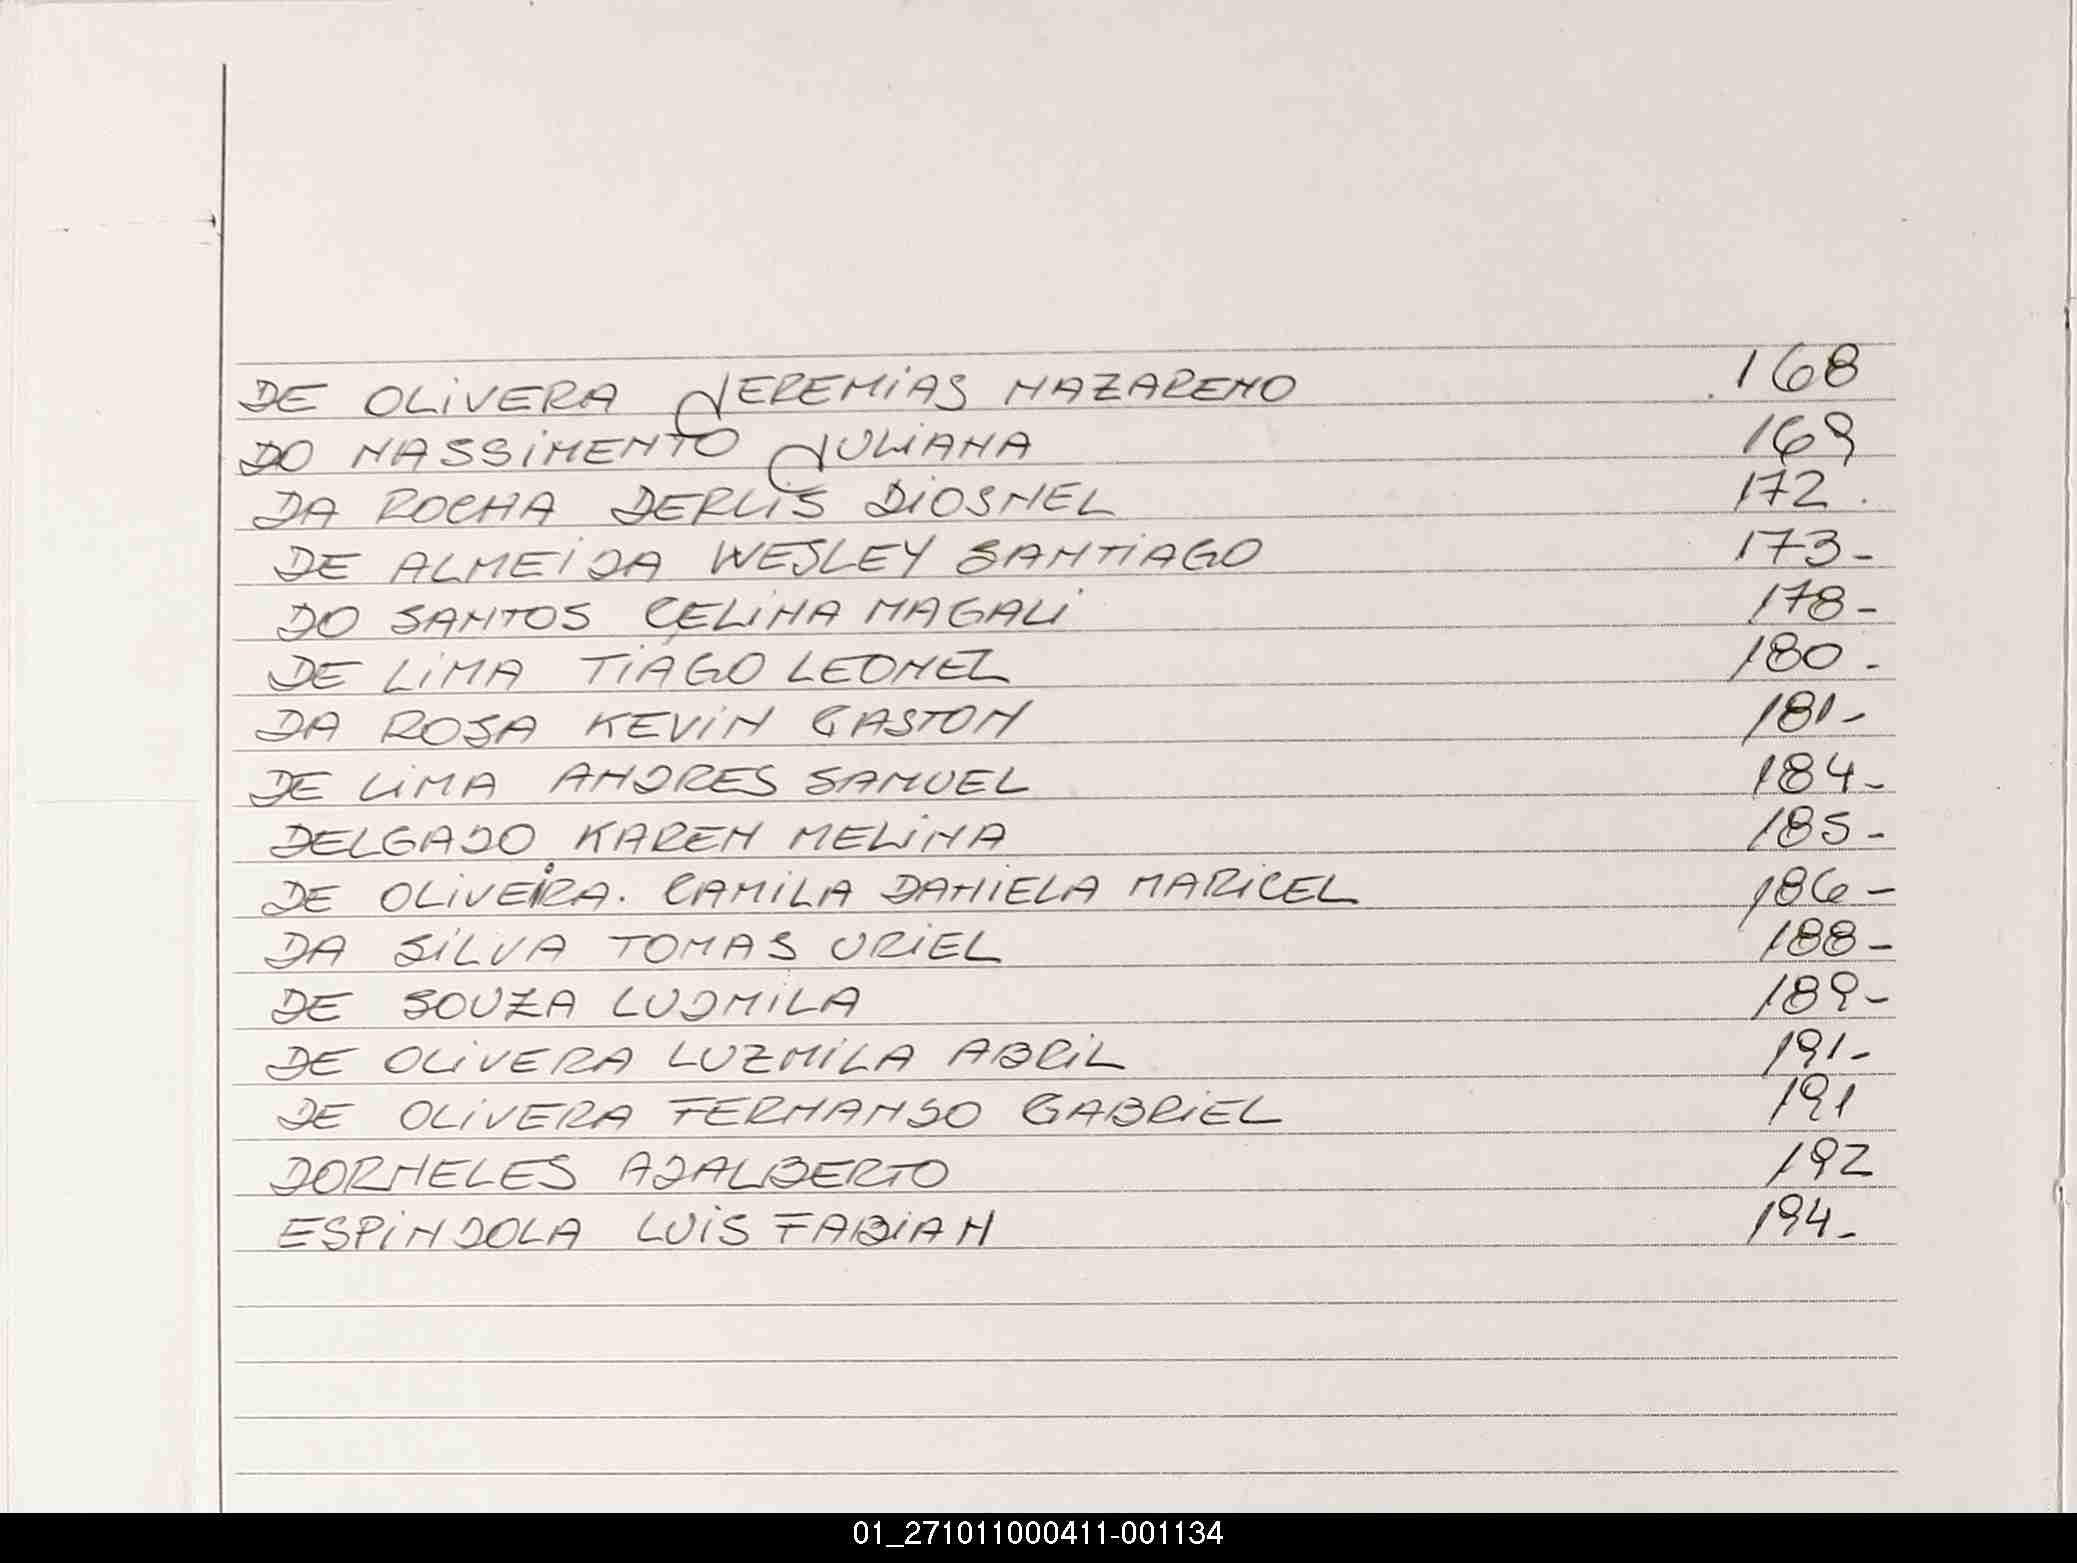 DE OLIVERA JEREMIAS NAZARENO .168
DO NASSIMENTO JULIANA 169
DA ROCHA DERLIS DIOSNEL 172.
DE ALMEIDA WESLEY SANTIAGO 173-
DO SANTOS CELINA MAGALI 178-
DE LIMA TIAGO LEONEL 180.
DA ROSA KEVIN GASTON 181-
DE LIMA ANDRES SAMUEL 184-
DELGADO KAREN MELINA 185-
DE OLIVEIRA. CAMILA DANIELA MARICEL 186-
DA SILVA TOMAS URIEL 188-
DE SOUZA LUDMILA 189-
DE OLIVERA LUZMILA ABRIL 191-
DE OLIVERA FERNANDO GABRIEL 191
DORNELES ADALBERTO 192
ESPINDOLA LUIS FABIAN 194-
01_271011000411-001134